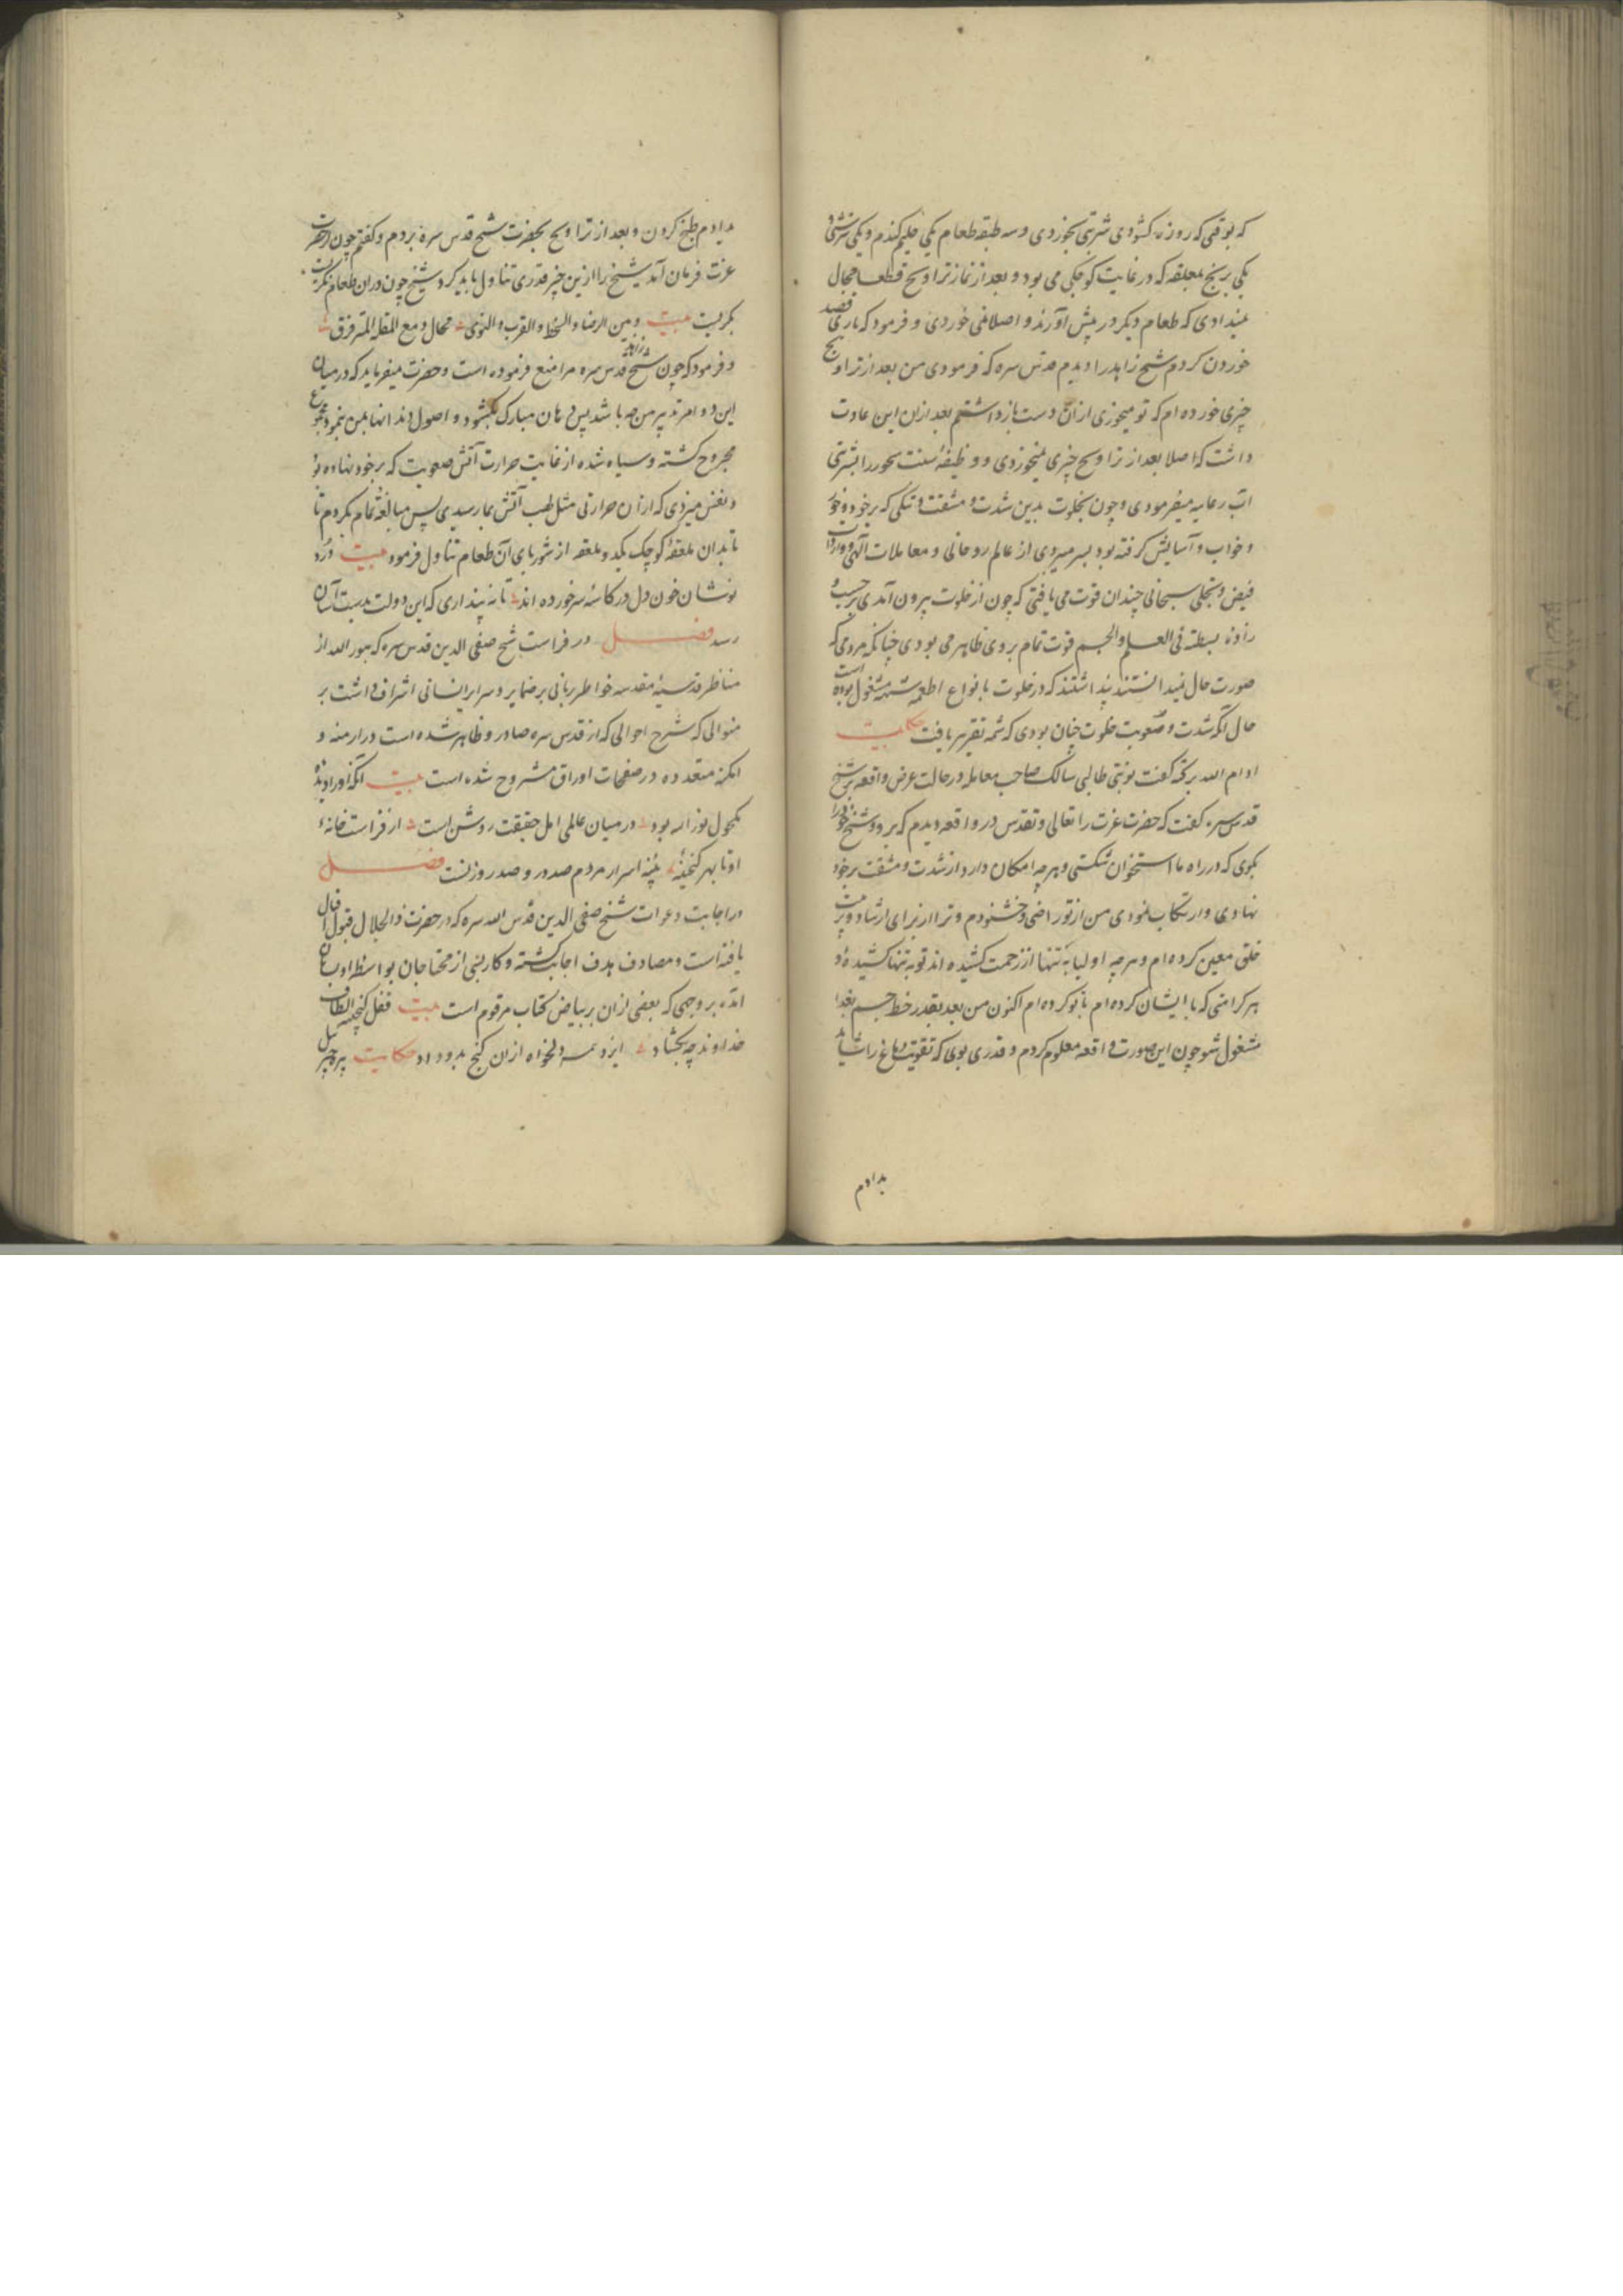 که بوقتی که روزه کشودی شربتی بخوردی و سه طبقه طعام یکی حلیم کندم و یکی ترشی و
یکی برنج بملعقه که در غایت کوچکی می بود و بعد از نماز تراویح قطعا مجال
نمیدادی که طعام دیکر در پیش آورند و اصلا نمی خوردی و فرمود که باری قصد
خوردن کردم شیخ زاهد را دیدم قدس سره که فرمودی من بعد از تراویح
چیزی خورده ام که تو میخوری از ان دست باز داشتم بعد ازان این عادت
داشت که اصلا بعد از تراویح چیزی نمیخوردی و وظیفه سنت سحور را بشربتی
آب رعایه میفرمودی و چون بخلوت بدین شدت و مشقت و تنکی که بر خود و خور
و خواب و آسایش کرفته بود بسر میبردی از عالم روحانی و معاملات آلهی و واردات
فیض و تجلی سبحانی چندان قوت می یافتی که چون از خلوت بیرون آمدی بر حسب و
زاده بسطة فی العلم و الجسم قوت تمام بر وی ظاهر می بودی چنانکه مردمی که
صورت حال نمیدانستند پنداشتند که در خلوت بانواع اطعمه مشتهیه مشغول بوده است
حال آنکه شدت و صعوبت خلوت چنان بودی که شمه تقریر یافت حکایت
ادام الله برکته کفت نوبتی طالبی سالک صاحب معامله در حالت عرض واقعه بر شیخ
قدس سره کفت که حضرت عزت را تعالی و تقدس در واقعه دیدم که برو و شیخ خود را
بکوی که در راه ما استخوان شکستی و هر چه امکان دارد از شدت و مشقت بر خود
نهادی و ارتکاب نمودی من از تو راضی و خشنودم و ترا از برای ارشاد و تربیت
خلق معین کرده ام و هر چه اولیا به تنها از زحمت کشیده اند تو به تنها کشیده و
هر کرامتی که با ایشان کرده ام با تو کرده ام اکنون من بعد بقدر حظ جسم بغذا
مشغول شو چون این صورت واقعه معلوم کردم و قدری بوی که تقویت دماغ را شاید
بدادم
بدادم طبخ کردن و بعد از تراویح بحضرت شیخ قدس سره بردم و کفتم چون از حضرت
عزت فرمان آمد شیخ را ازین چیز قدری تناول باید کرد شیخ چون دران طعام نکریست
بکریست بیت و بین الرضا و السخط و القرب و النوی مجال دمع المقلة المترقرق
و فرمود که چون شیخ زاهد قدس سره مرا منع فرموده است و حضرت میفرماید که در میان
این دو امر تدبیر من چه باشد پس دهان مبارک بکشود و اصول دندانها بمن نمود مجموع
مجروح کشته و سیاه شده از غایت حرارت آتش صعوبت که بر خود نهاده بود
و نفس میزدی که از ان حرارتی مثل لهب آتش بما رسیدی پس مبالغه تمام بکردم تا
تا بدان ملعقه کوچک یکدو ملعقه از شوربای آن طعام تناول فرمود بیت درد
نوشان خون دل در کاسه سر خورده اند تا نه پنداری که این دولت بدست آسان
رسد فصل در فراست شیخ صفی الدین قدس سره که بنور الله از
مناظر قدسیه مقدسه خواطر ربانی بر ضمایر و سرایر انسانی اشراف داشت بر
منوالی که شرح احوالی که از قدس سره صادر و ظاهر شده است در ازمنه و
امکنه متعدده در صفحات اوراق مشروح شده است بیت آنکه او را دیده
مکحول نور الله بود در میان عالمی اهل حقیقت روشن است از فراست خانه
او تا بهر کنجینه سینه اسرار مردم صدور و صدر روزنست فصل
در اجابت دعوات شیخ صفی الدین قدس الله سره که در حضرت ذالجلال قبول اقبال
یافته است و مصادف هدف اجابت کشته و کار بسی از محتاجان بواسطه او بسامان
آمده بر وجهی که بعضی ازان بر بیاض کتاب مرقوم است بیت قفل کنجینه الطاف
خداوند چه بکشاد ایزد همه دلخواه ازان کنج بدو داد حکایت پیره جبرئیل